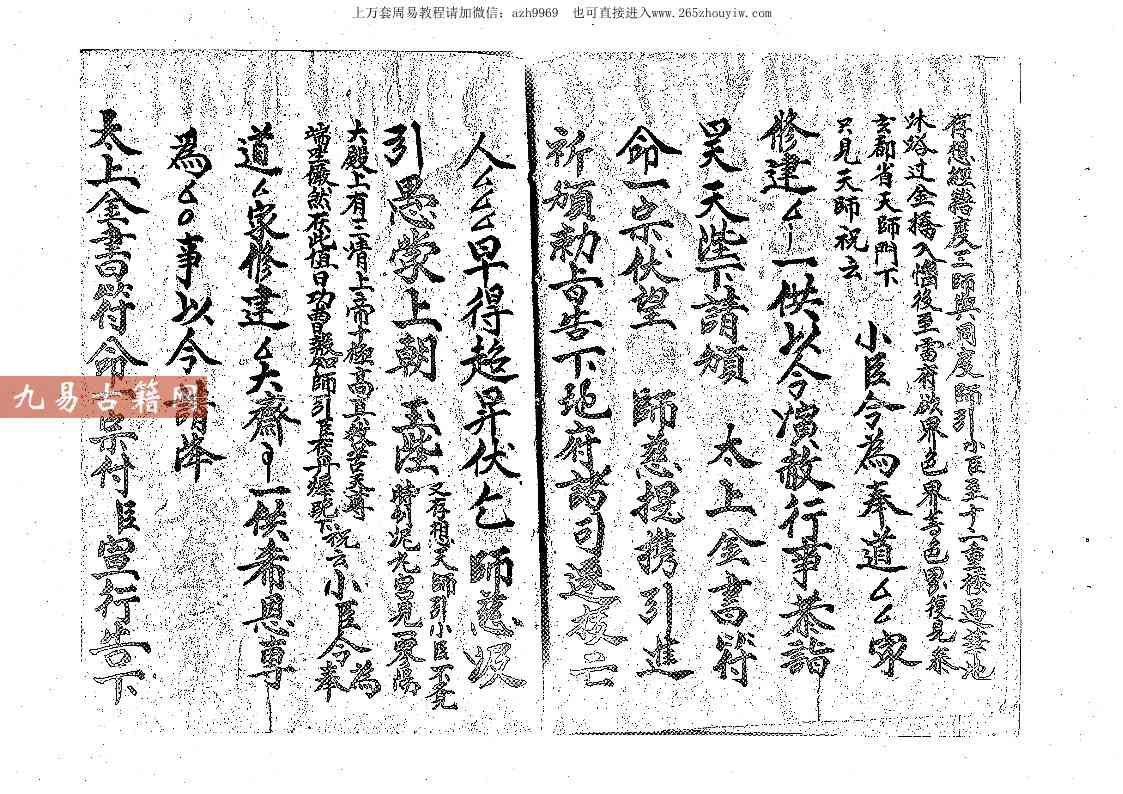 上万套周易教程请加微信：azh9969　也可直接进入www.265zhouyiw.com
存想經籍度三師與同度師引小臣至十二重樓過華池
沐路过金橋入 後至雷府欲界色界 色界復見泰
玄都省天師門下　小臣今為奉道厶厶家
只見天師祝云
修建厶 一供以今演故行事恭詣
昊天　天陛下請頒　太上金書符
命一宗伏望　師慈提携引進
祈頒勅旨告下地府諸司逐拔亡
人厶厶早得超昇伏乞　師慈 
引愚蒙上朝　玉陛
又存想天師引小臣 
泥丸宮見一
大殿上有三清上帝十極高真救苦天尊
端坐儼然在此值日功曹報知師引臣
祝云小臣今為奉
道厶家修建厶大齋 一供希恩尊
為厶○事以今請降
太上金書符命一宗付臣宣行告下
九易古籍网